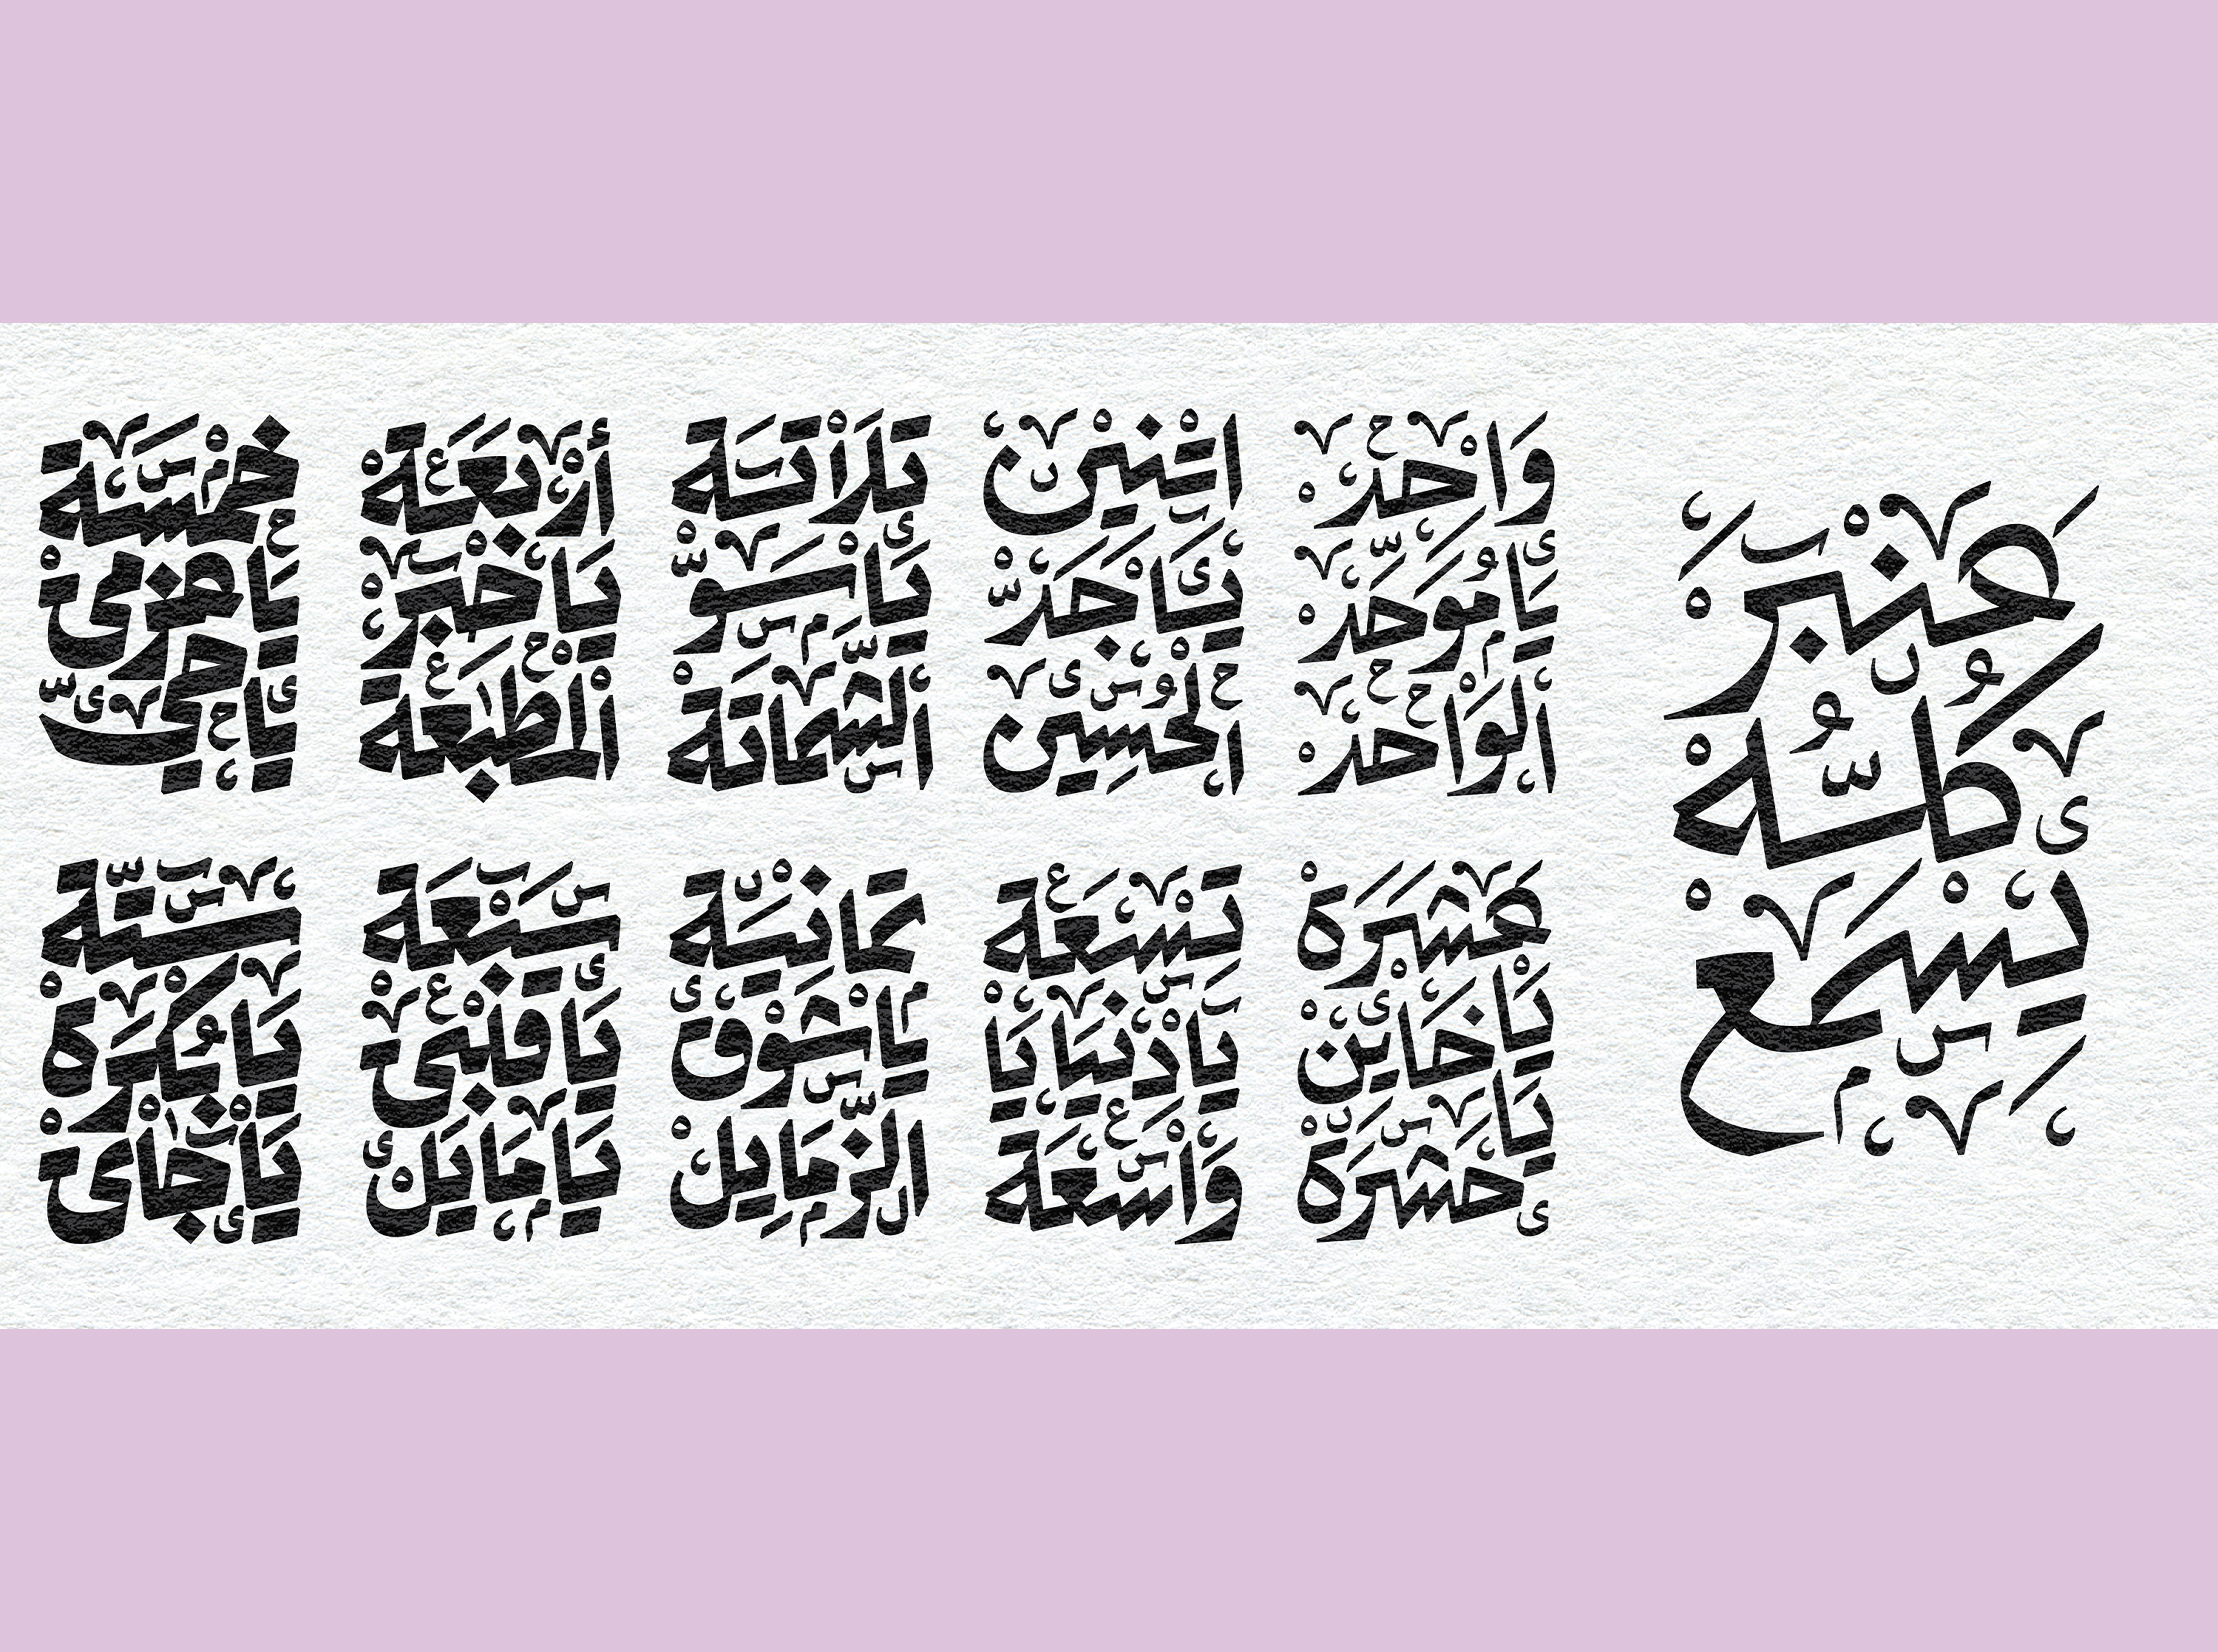 عنبر
كله
يسمع
واحد
يا موحد
الواحد
اتنين
يا جد
الحسين
تلاتة
يا سو
الشماتة
أربعة
يا خبر
المطبعة
خمسة
يا عزمى
يا حى
ستة
يا بكرة
يا جاى
سبعة
يا قلبى
يا مايل
تمانية
يا شوق
الزمايل
تسعة
يا دنيا يا
واسعة
عشرة
يا خاين
يا حشرة